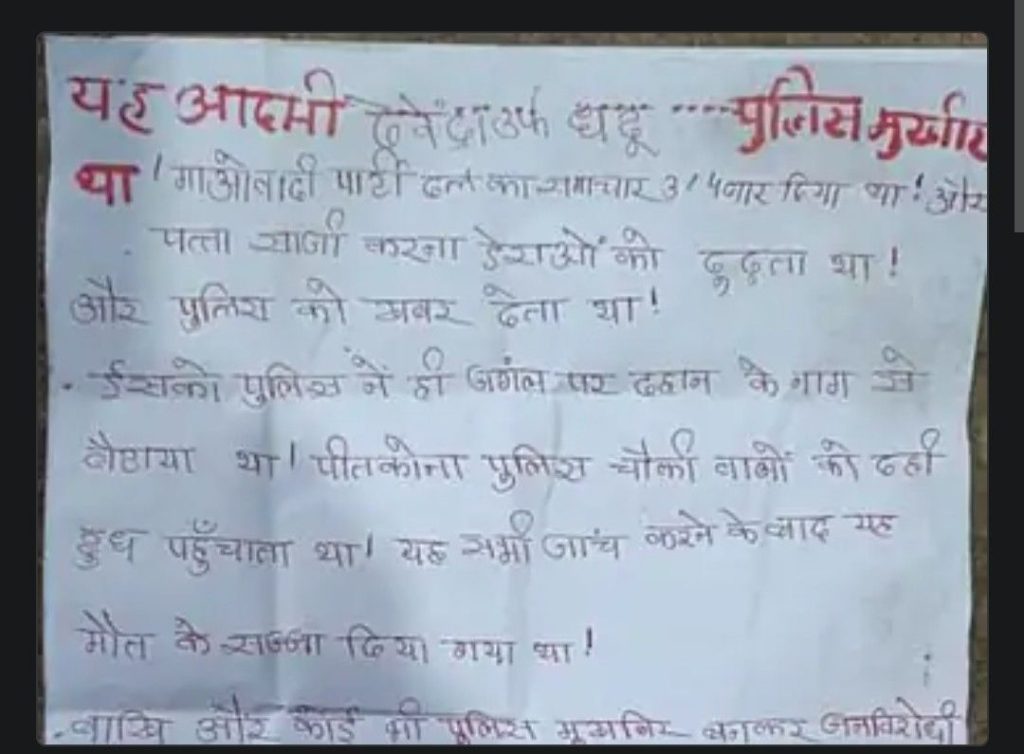 यह आदमी देवेंद्रा उर्फ धदू ---- पुलिस मुर्खीर
था ! माओवादी पार्टी दल का समाचार 3/4 बार दिया था! और
पत्ता साजी करना डेराओं को ढूढ़ता था!
और पुलिस को खबर देता था!
. ईसको पुलिस नें ही जगंल पर दहान के नाम से
बैठाया था! पीतकोना पुलिस चौकी वालों को दही
दुध पहुँचाता था! यह सभी जांच करने के बाद यह
मौत के सज्जा दिया गया था!
. बाखि और कोई भी पुलिस मुखबिर बनकर जनविरोधी